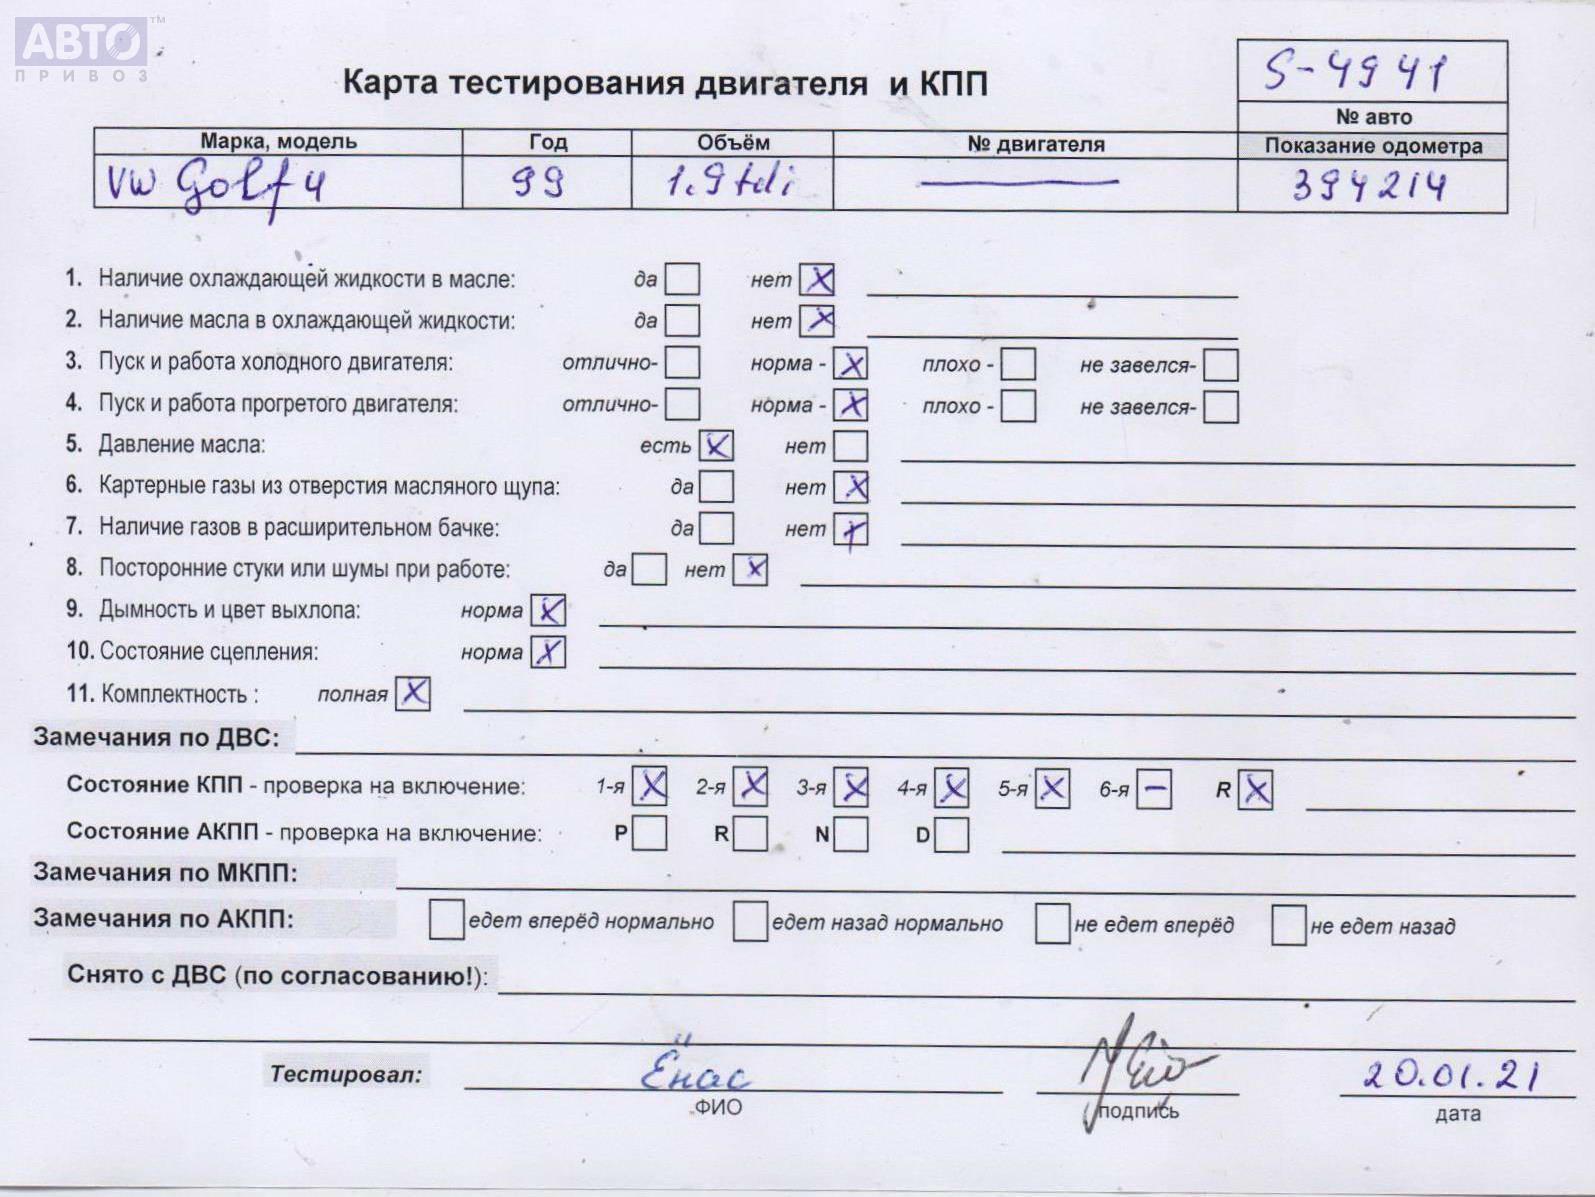 АВТО™
ПРИВОЗ
Карта тестирования двигателя и КПП
S-4941
№ авто
Марка, модель Год Объём № двигателя Показание одометра
VW Golf 4 99 1.9 tdi — 394214
1. Наличие охлаждающей жидкости в масле: да нет X
2. Наличие масла в охлаждающей жидкости: да нет X
3. Пуск и работа холодного двигателя: отлично- норма - X плохо - не завелся-
4. Пуск и работа прогретого двигателя: отлично- норма - X плохо - не завелся-
5. Давление масла: есть X нет
6. Картерные газы из отверстия масляного щупа: да нет X
7. Наличие газов в расширительном бачке: да нет X
8. Посторонние стуки или шумы при работе: да нет X
9. Дымность и цвет выхлопа: норма X
10. Состояние сцепления: норма X
11. Комплектность : полная X
Замечания по ДВС:
Состояние КПП - проверка на включение: 1-я X 2-я X 3-я X 4-я X 5-я X 6-я — R X
Состояние АКПП - проверка на включение: P R N D
Замечания по МКПП:
Замечания по АКПП: едет вперёд нормально едет назад нормально не едет вперёд не едет назад
Снято с ДВС (по согласованию!):
Тестировал: Ёнас 20.01.21
ФИО подпись дата